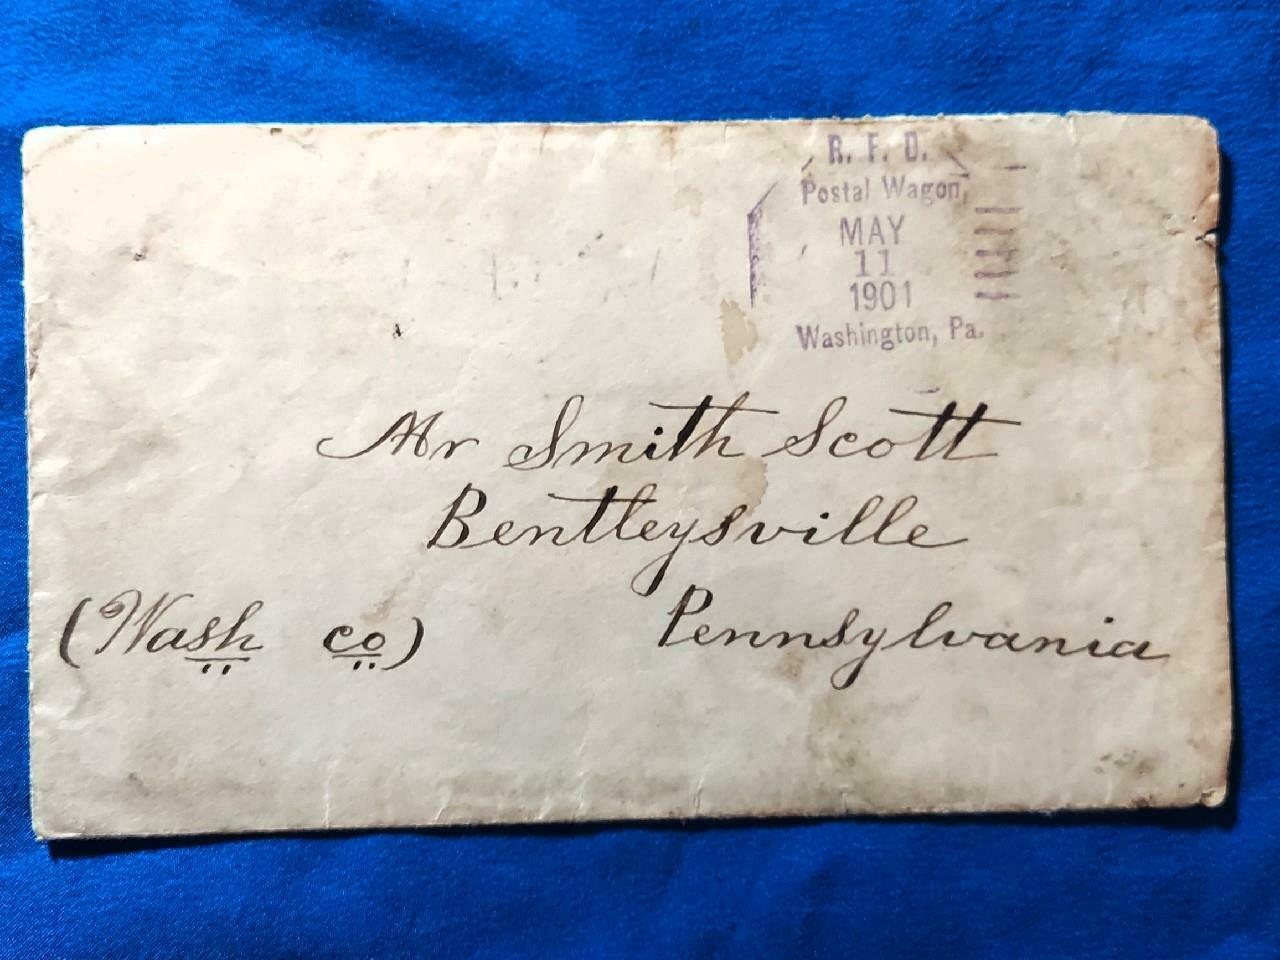 R. F. D.
Postal Wagon,
MAY
11
1901
Washington, Pa.
Mr Smith Scott
Bentleysville
(Wash co) Pennsylvania